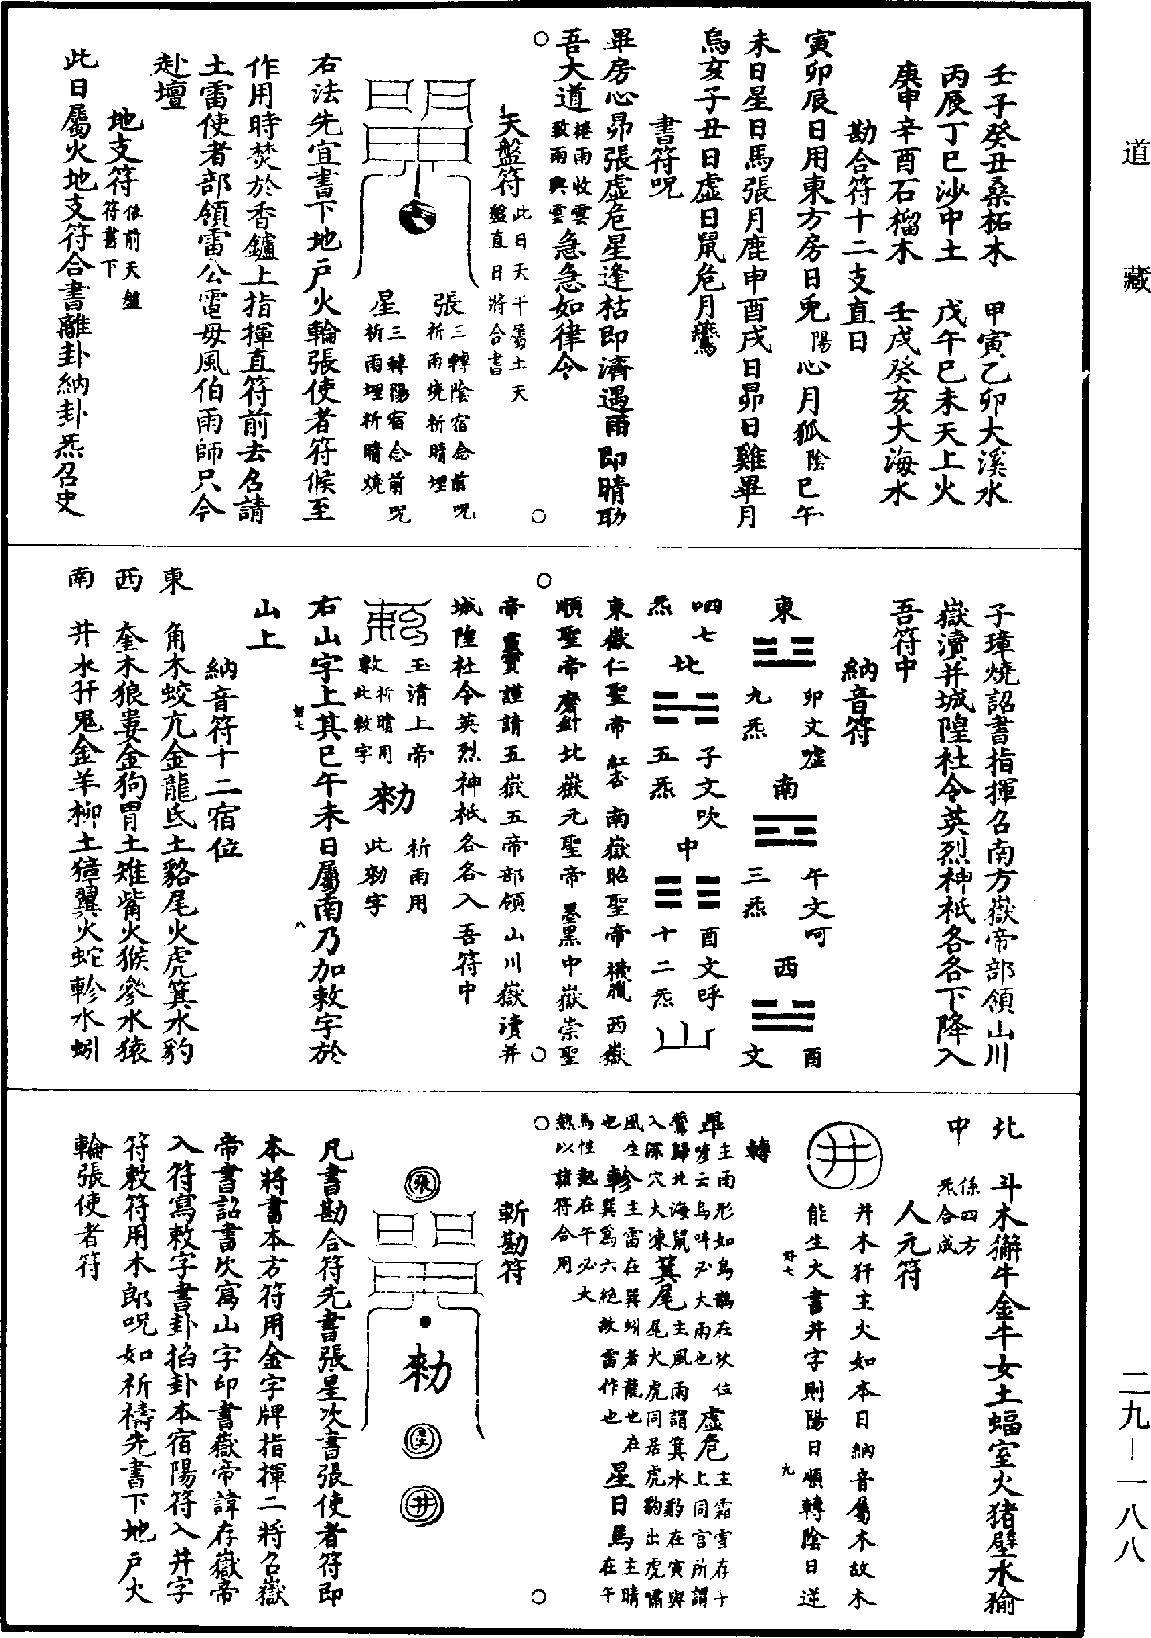 道藏
二九—一八八
壬子癸丑桑柘木　甲寅乙卯大溪水
丙辰丁巳沙中土　戊午己未天上火
庚申辛酉石榴木　壬戌癸亥大海水
勘合符十二支直日
寅卯辰日用東方房日兔陽心月狐陰巳午
未日星日馬張月鹿申酉戌日昴日雞畢月
烏亥子丑日虛日鼠危月鷰
書符呪
畢房心昴張虛危星逢枯即濟遇雨即晴助
吾大道捲雨收雲致雨興雲急急如律令
天盤符此日天干屬土天盤直日將合書
張三轉陰宿念前呪祈雨燒祈晴埋
星三轉陽宿念前呪祈雨埋祈晴燒
右法先宜書下地戶火輪張使者符候至
作用時焚於香鑪上指揮直符前去召請
土雷使者部領雷公電母風伯雨師只今
赴壇
地支符依前天盤符書下
此日屬火地支符合書離卦納卦炁召史
子璋燒詔書指揮召南方嶽帝部領山川
嶽瀆并城隍社令英烈神祇各各下降入
吾符中
納音符
東　卯文噓九炁　南　午文呵三炁　西　酉文
呬七炁　北　子文吹五炁　中　酉文呼十二炁　山
東嶽仁聖帝　南嶽昭聖帝　西嶽
順聖帝　北嶽元聖帝　中嶽崇聖
帝　謹請五嶽五帝部領山川嶽瀆并
城隍社令英烈神祇各各入吾符中
玉清上帝敕祈晴用此敕字　勑祈雨用此勑字
右山字上其巳午未日屬南乃加敕字於
山上
納音符十二宿位
東　角木蛟亢金龍氐土貉尾火虎箕水豹
西　奎木狼婁金狗胃土雉觜火猴參水猿
南　井水犴鬼金羊柳土獐翼火蛇軫水蚓
北　斗木獬牛金牛女土蝠室火猪壁水㺄
中　係四方炁合成
人元符
井　井木犴主火如本日納音屬木故木
能生火書井字則陽日順轉陰日逆
轉
畢主雨形如烏鵲在坎位虛危主霜雪存子
嗲云烏叫必大雨也上同言所謂
鶯歸北海鼠主風雨謂箕水豹在寅與
入深穴大凍箕尾尾火虎同居虎豹出虎嘯
風生軫主雷在巽蚓若龍也在
也巽為六絕故雷作也星日馬主晴在午
馬性起在午必大
熱以諸符合用
斬勘符
張
勑
井
凡書勘合符先書張星次書張使者符即
本將書本方符用金字牌指揮二將召嶽
帝書詔書次寫山字印書嶽帝諱存嶽帝
入符寫敕字書卦掐卦本宿陽符入井字
符敕符用木郎呪如祈禱先書下地戶火
輪張使者符